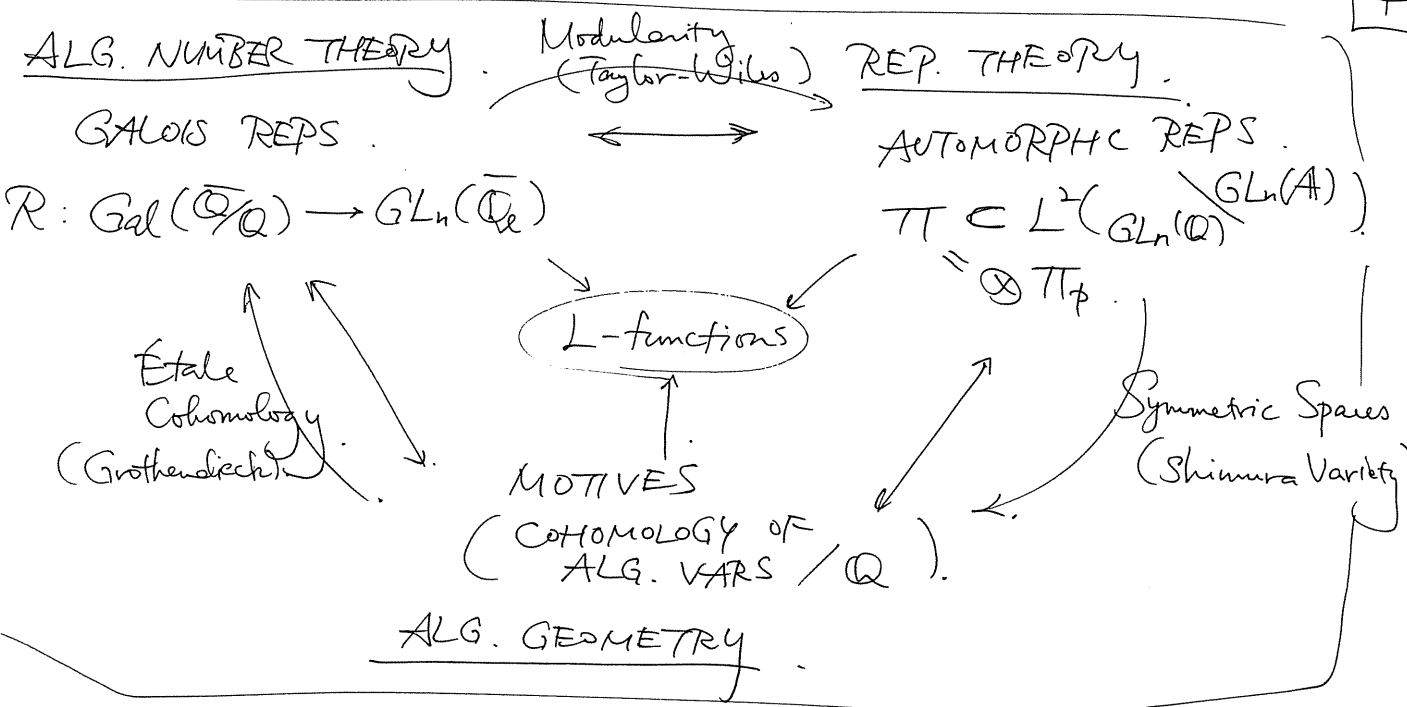 ALG. NUMBER THEORY.
Modularity
(Taylor-Wiles)
REP. THEORY.
GALOIS REPS.
AUTOMORPHC REPS.
R : Gal(Q̅/Q) → GLn(Q̅ℓ)
π ⊂ L²(GLn(Q)\GLn(A))
= ⊗ πp.
L-functions
Étale
Cohomology
(Grothendieck).
Symmetric Spaces
(Shimura Variety
MOTIVES
(COHOMOLOGY OF
ALG. VARS / Q).
ALG. GEOMETRY.